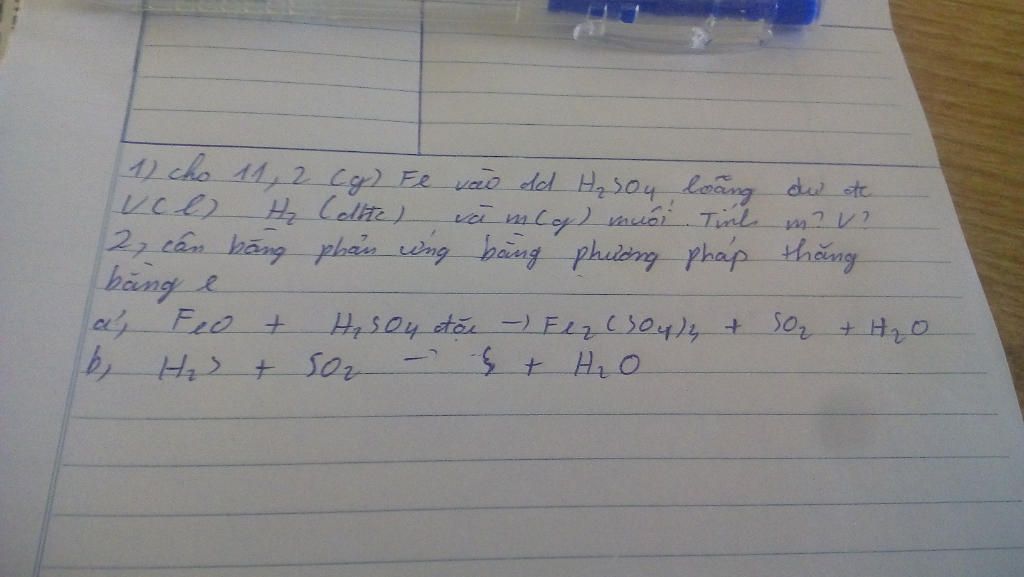 1) cho 11,2 (g) Fe vào dd H₂SO₄ loãng dư đc
V(l) H₂ (đktc) và m(g) muối. Tính m? V?
2, cân bằng phản ứng bằng phương pháp thăng
bằng e
a, FeO + H₂SO₄ đặc → Fe₂(SO₄)₃ + SO₂ + H₂O
b, H₂S + SO₂ → S + H₂O